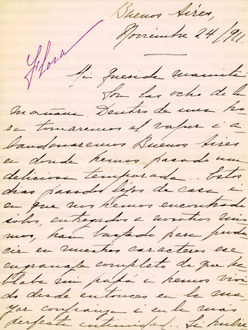 Buenos Aires,
Noviembre 24/911
Flora
Mi Querida mamita
Son las ocho de la
mañana. Dentro de una ho
ra tomaremos el vapor i a
bandonaremos Buenos Aires
en donde hemos pasado una
deliciosa temporada. Estos
dias pasados lejos de casa e
en que nos hemos encontrado
solos, entregados a nosotros mis
mos han bastado para produ
cir en nuestros caracteres ese
engranaje completo de que ha
blaba mi papá i hemos vivi
do desde entonces en la ma
yor confianza i en la mas
perfecta